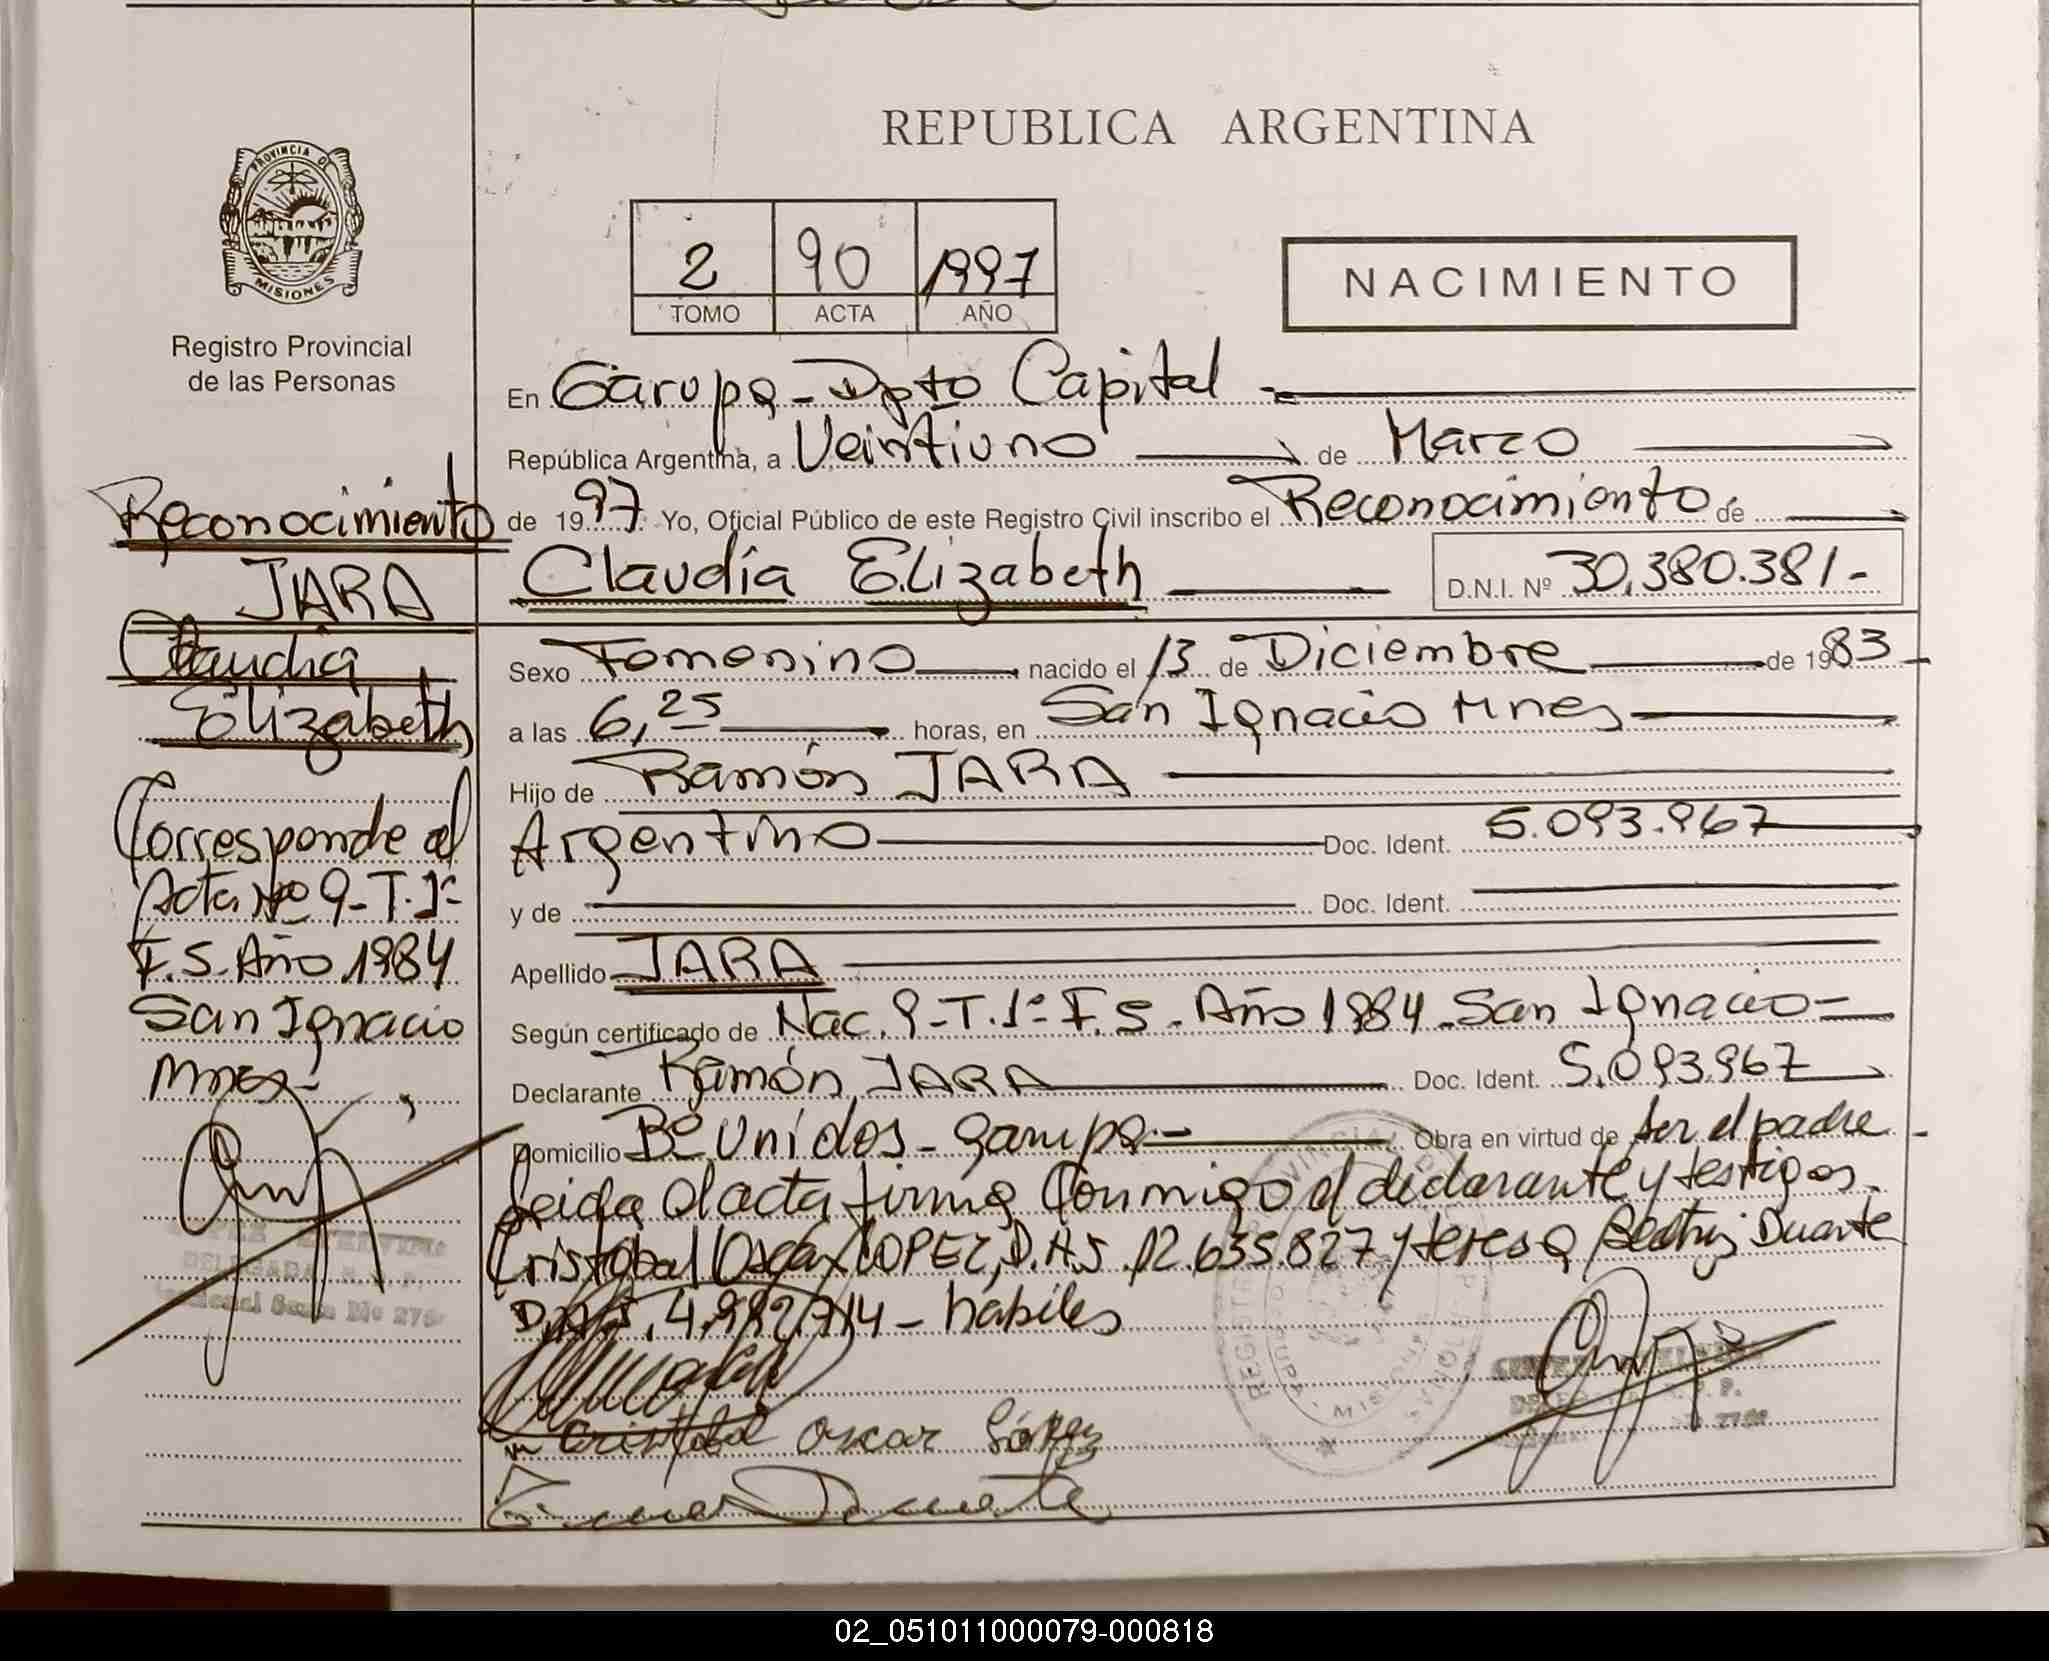 REPUBLICA ARGENTINA
PROVINCIA DE
MISIONES
Registro Provincial
de las Personas
2 90 1997
TOMO ACTA AÑO
NACIMIENTO
En Garupa - Dpto Capital
República Argentina, a Veintiuno de Marzo
de 1997. Yo, Oficial Público de este Registro Civil inscribo el Reconocimiento de
Claudía Elizabeth D.N.I. Nº 30.380.381.-
Sexo Femenino nacido el 13 de Diciembre de 1983
a las 6,25 horas, en San Ignacio Mnes
Hijo de Ramón JARA
Argentino Doc. Ident. 5.093.967
y de Doc. Ident.
Apellido JARA
Según certificado de Nac. 9-T.1º F.S. Año 1984 - San Ignacio
Declarante Ramón JARA Doc. Ident. 5.093.967
Domicilio Bº Unidos - Garupa.- Obra en virtud de ser el padre
Leida el acta firma conmigo el declarante y testigos
Cristobal Oscar LOPEZ, D.N.I. 12.635.827 y teresa Beatriz Duarte
D.N.I. 4.992.714 - hábiles
Cristobal Oscar López
Duarte
Reconocimiento
JARA
Claudia
Elizabeth
Corresponde al
Acta Nº 9-T.1º
F.S. Año 1984
San Ignacio
Mnes.-
02_051011000079-000818